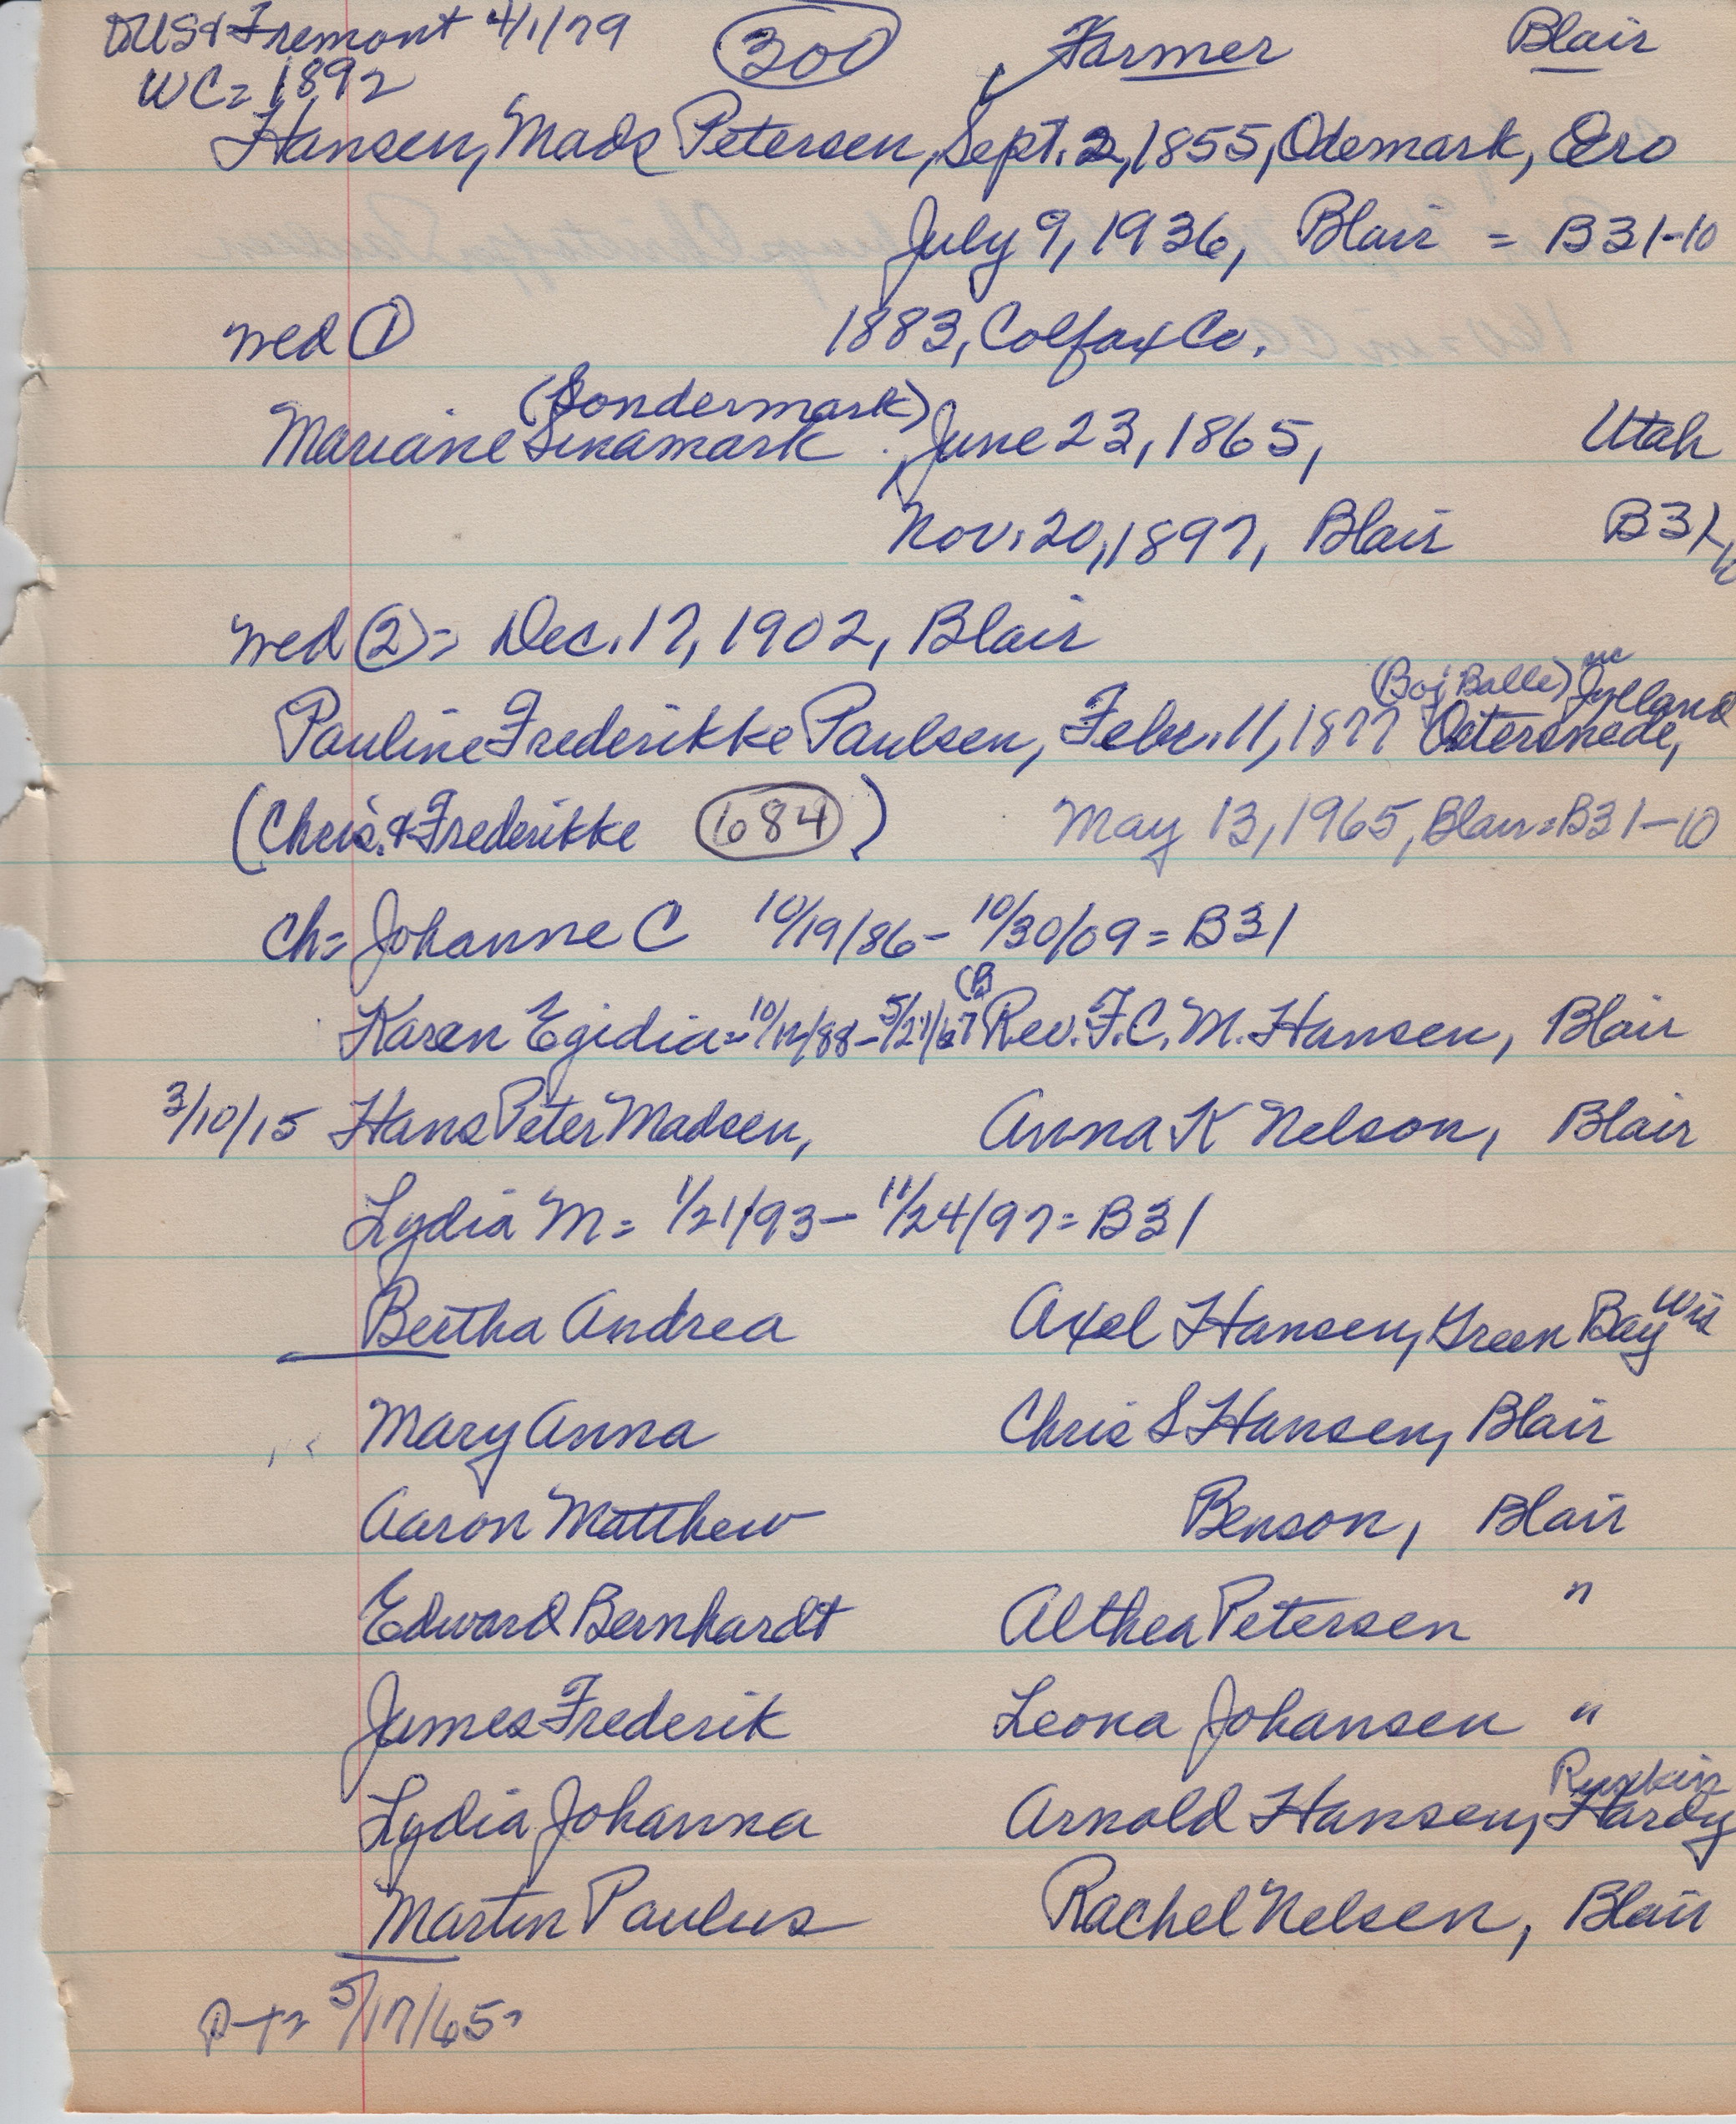 DUS & Fremont 4/1/79 300 Farmer Blair
WC = 1892
Hansen, Mads Petersen, Sept. 2, 1855, Odemark, Oero
July 9, 1936, Blair = B31-10
wed ① 1883, Colfax Co.
(Sondermark)
Mariane Sinamark, June 23, 1865, Utah
Nov. 20, 1897, Blair B31-10
wed ② = Dec. 17, 1902, Blair
(Boj Balle) Jylland
Pauline Frederikke Paulsen, Febr. 11, 1877 Ostersnede,
(Chris. & Frederikke 684) May 13, 1965, Blair = B31-10
Ch = Johanne C 10/19/86 - 10/30/09 = B31
Karen Egidia = 10/14/88 - 5/21/67 Rev. F.C.M. Hansen, Blair
3/10/15 Hans Peter Madsen, Anna K Nelson, Blair
Lydia M = 1/21/93 - 11/24/97 = B31
Bertha Andrea Axel Hansen, Green Bay Wis
Mary Anna Chris S Hansen, Blair
Aaron Matthew Benson, Blair
Edward Bernhardt Althea Petersen "
James Frederik Leona Johansen "
Lydia Johanna Arnold Hansen, Hardy
Martin Paulus Rachel Nelsen, Blair
5/17/65